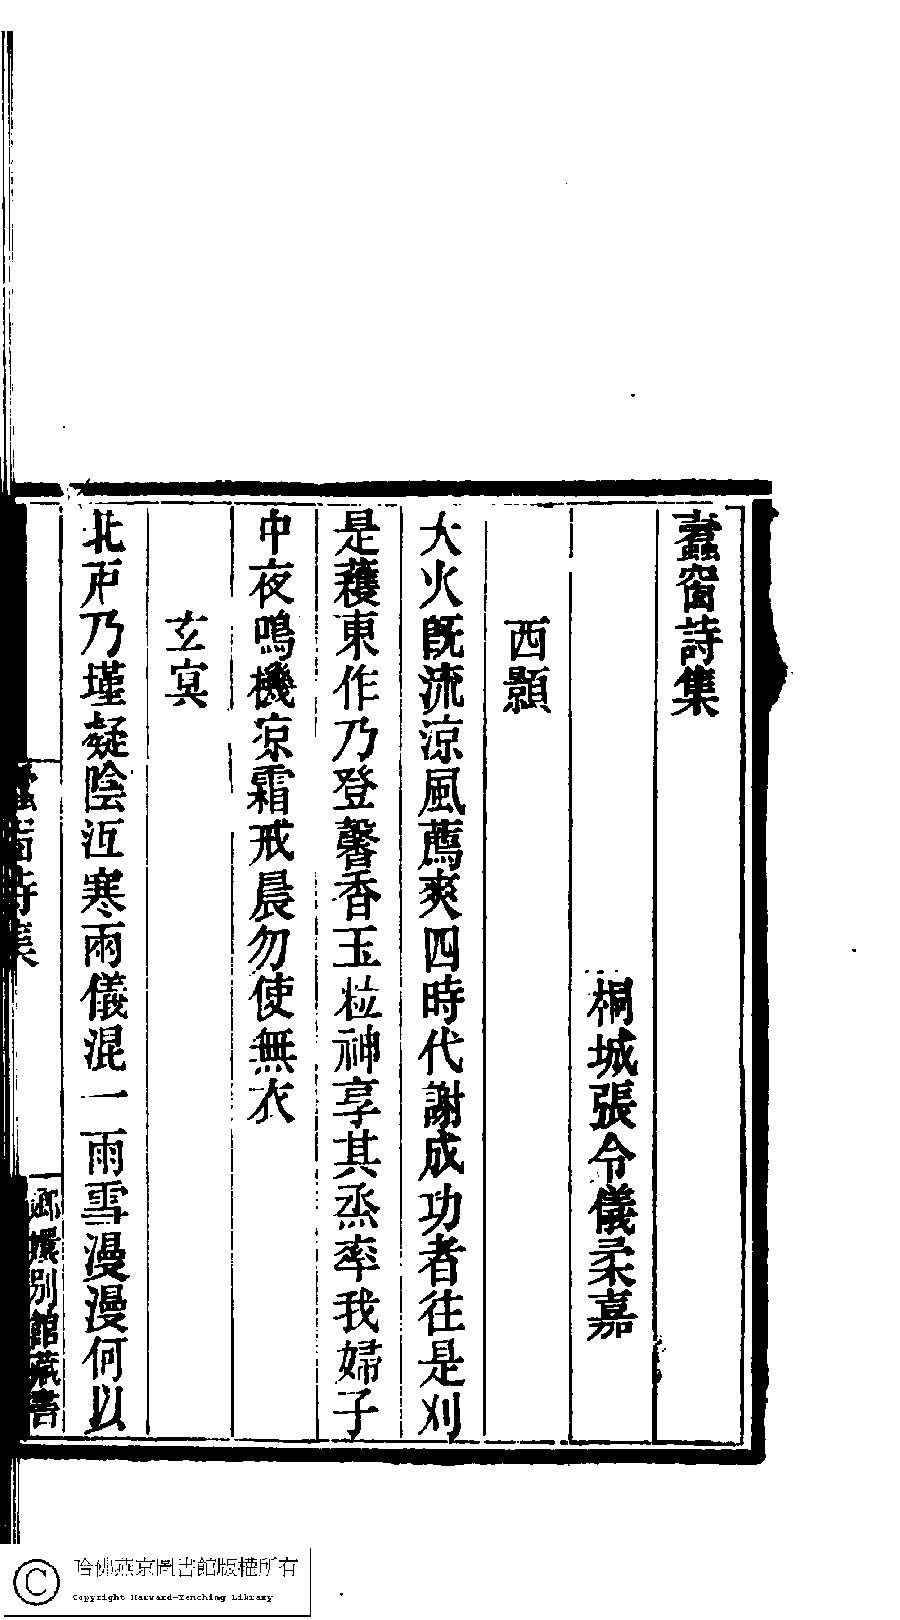 蠹窗詩集
桐城張令儀柔嘉
西顥
大火既流涼風薦爽四時代謝成功者往是刈
是穫東作乃登馨香玉粒神享其烝率我婦子
中夜鳴機凉霜戒晨勿使無衣
玄冥
北戶乃墐凝陰沍寒兩儀混一雨雪漫漫何以
蠹窗詩集
嫏嬛別館藏書
哈佛燕京圖書館版權所有
Copyright Harvard-Yenching Library